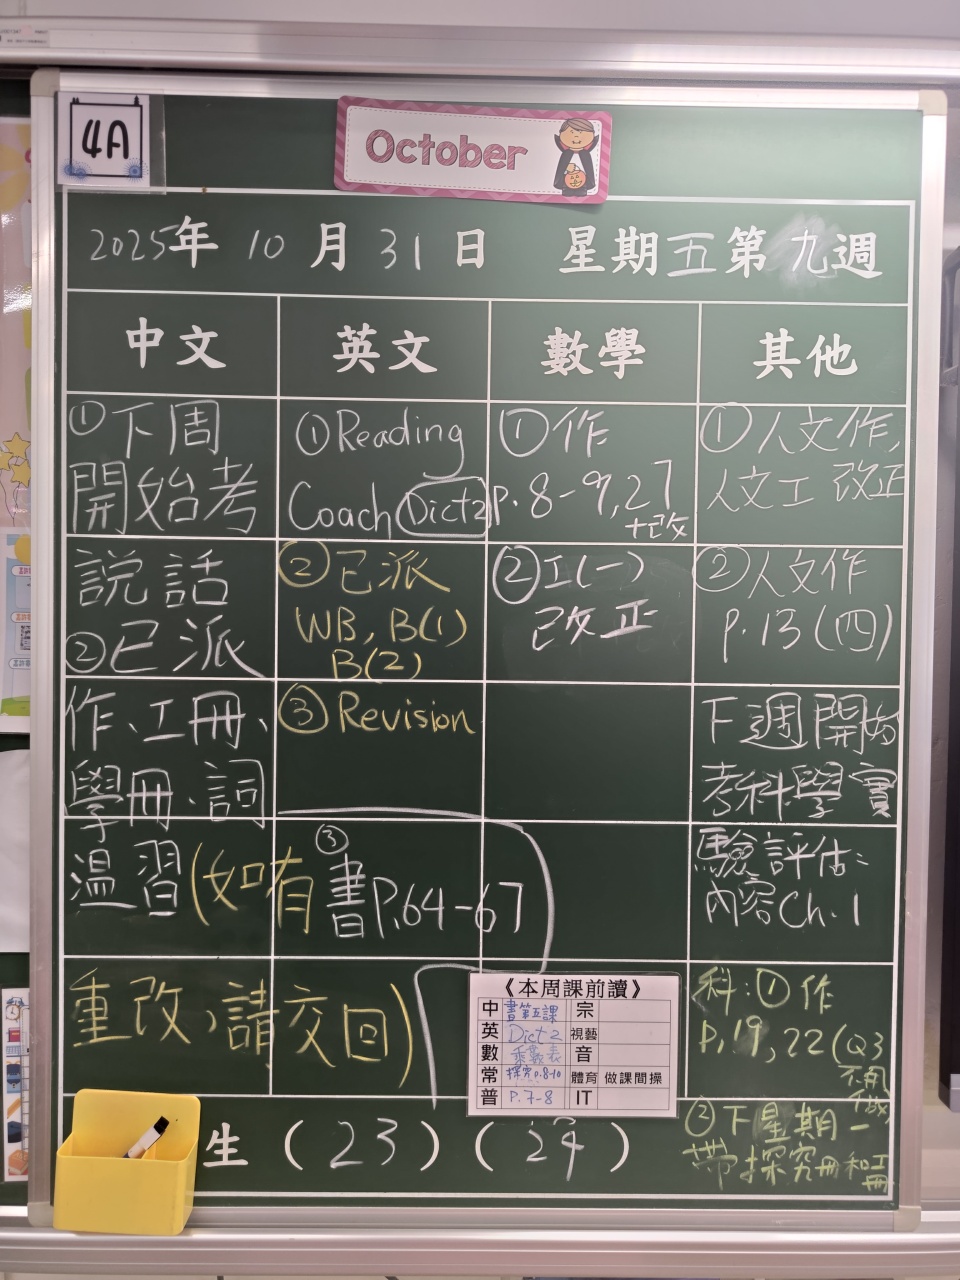 4A
October
2025年 10 月 31 日 星期五第九週
中文
①下周
開始考
説話
②已派
作、工冊、
學冊、詞
溫習(如有
重改，請交回)
③書P.64-67
英文
①Reading
Coach Dict2
②已派
WB, B(1)
B(2)
③Revision
數學
①作
P.8-9,27
+改
②工(一)
改正
其他
①人文作,
人文工 改正
②人文作
P.13(四)
下週開始
考科學實
驗評估:
內容Ch.1
科:①作
P.19,22(Q3
不用
做
②下星期一
帶探究冊和工
冊
《本周課前讀》
中 書第五課 宗
英 Dict 2 視藝
數 乘數表 音
常 探究P.8-10 體育 做課間操
普 P.7-8 IT
生(23)(24)